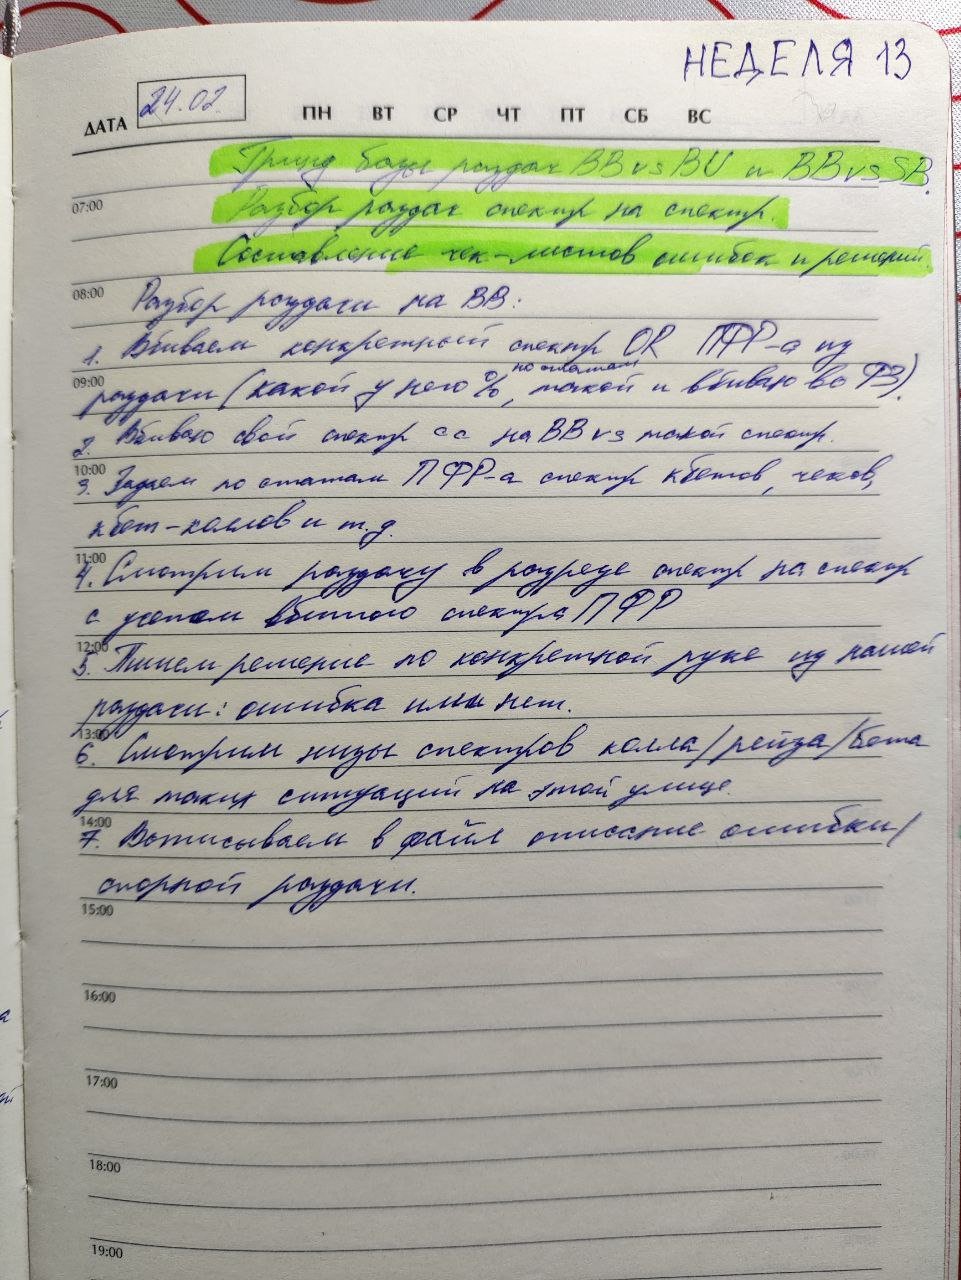 НЕДЕЛЯ 13
ДАТА 24.02. ПН ВТ СР ЧТ ПТ СБ ВС
Гринд базы раздач BB vs BU и BB vs SB.
07:00
Разбор раздач спектр на спектр.
Составление чек-листов ошибок и решений.
08:00
Разбор раздачи на BB:
1. Вбиваем конкретный спектр OR ПФР-а из
09:00
раздачи (какой у него %, по статам такой и вбиваю во F3).
2. Вбиваю свой спектр cc на BB vs такой спектр.
10:00
3. Задаем по статам ПФР-а спектр кбетов, чеков,
кбет-коллов и т.д.
11:00
4. Смотрим раздачу в разрезе спектр на спектр
с учетом вбитого спектра ПФР
12:00
5. Пишем решение по конкретной руке из нашей
раздачи: ошибка или нет.
13:00
6. Смотрим низы спектров колла/рейза/бета
для таких ситуаций на этой улице.
14:00
7. Выписываем в файл описание ошибки/
спорной раздачи.
15:00
16:00
17:00
18:00
19:00